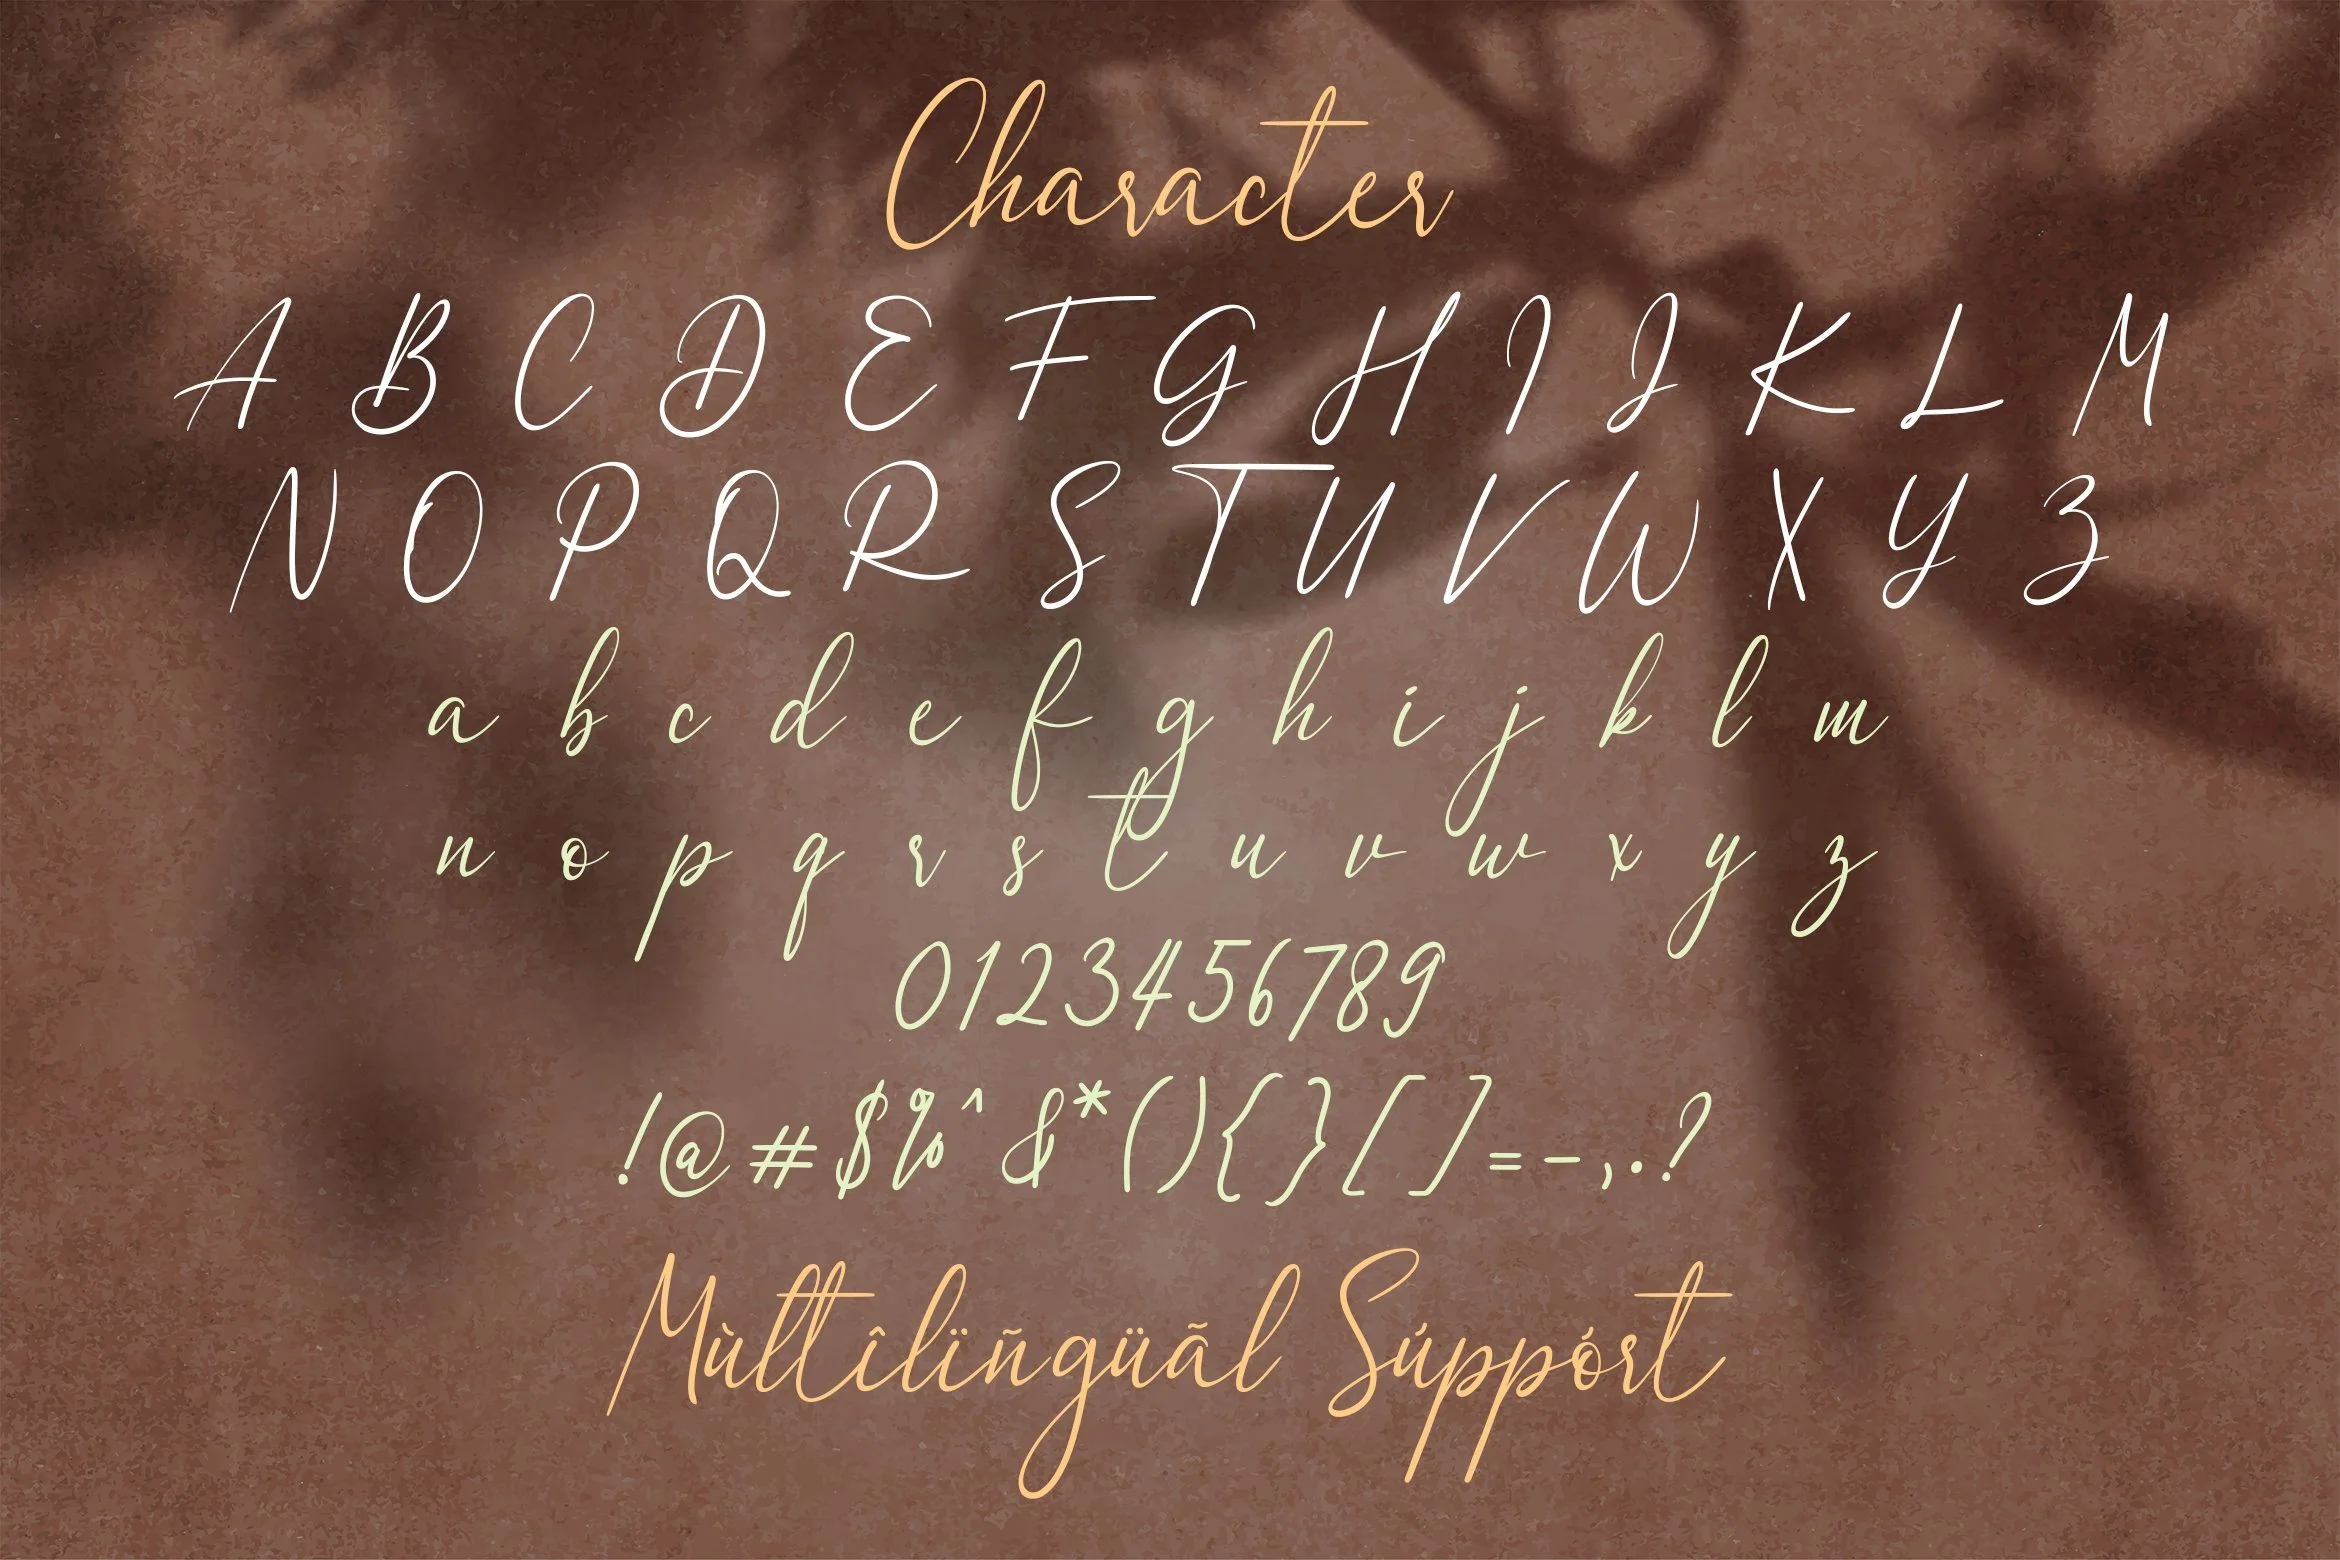 Character
A B C D E F G H I J K L M
N O P Q R S T U V W X Y Z
a b c d e f g h i j k l m
n o p q r s t u v w x y z
0123456789
!@#$%^&*(){}[]=-,.?
Mùltîlïñgüãl Súppórt